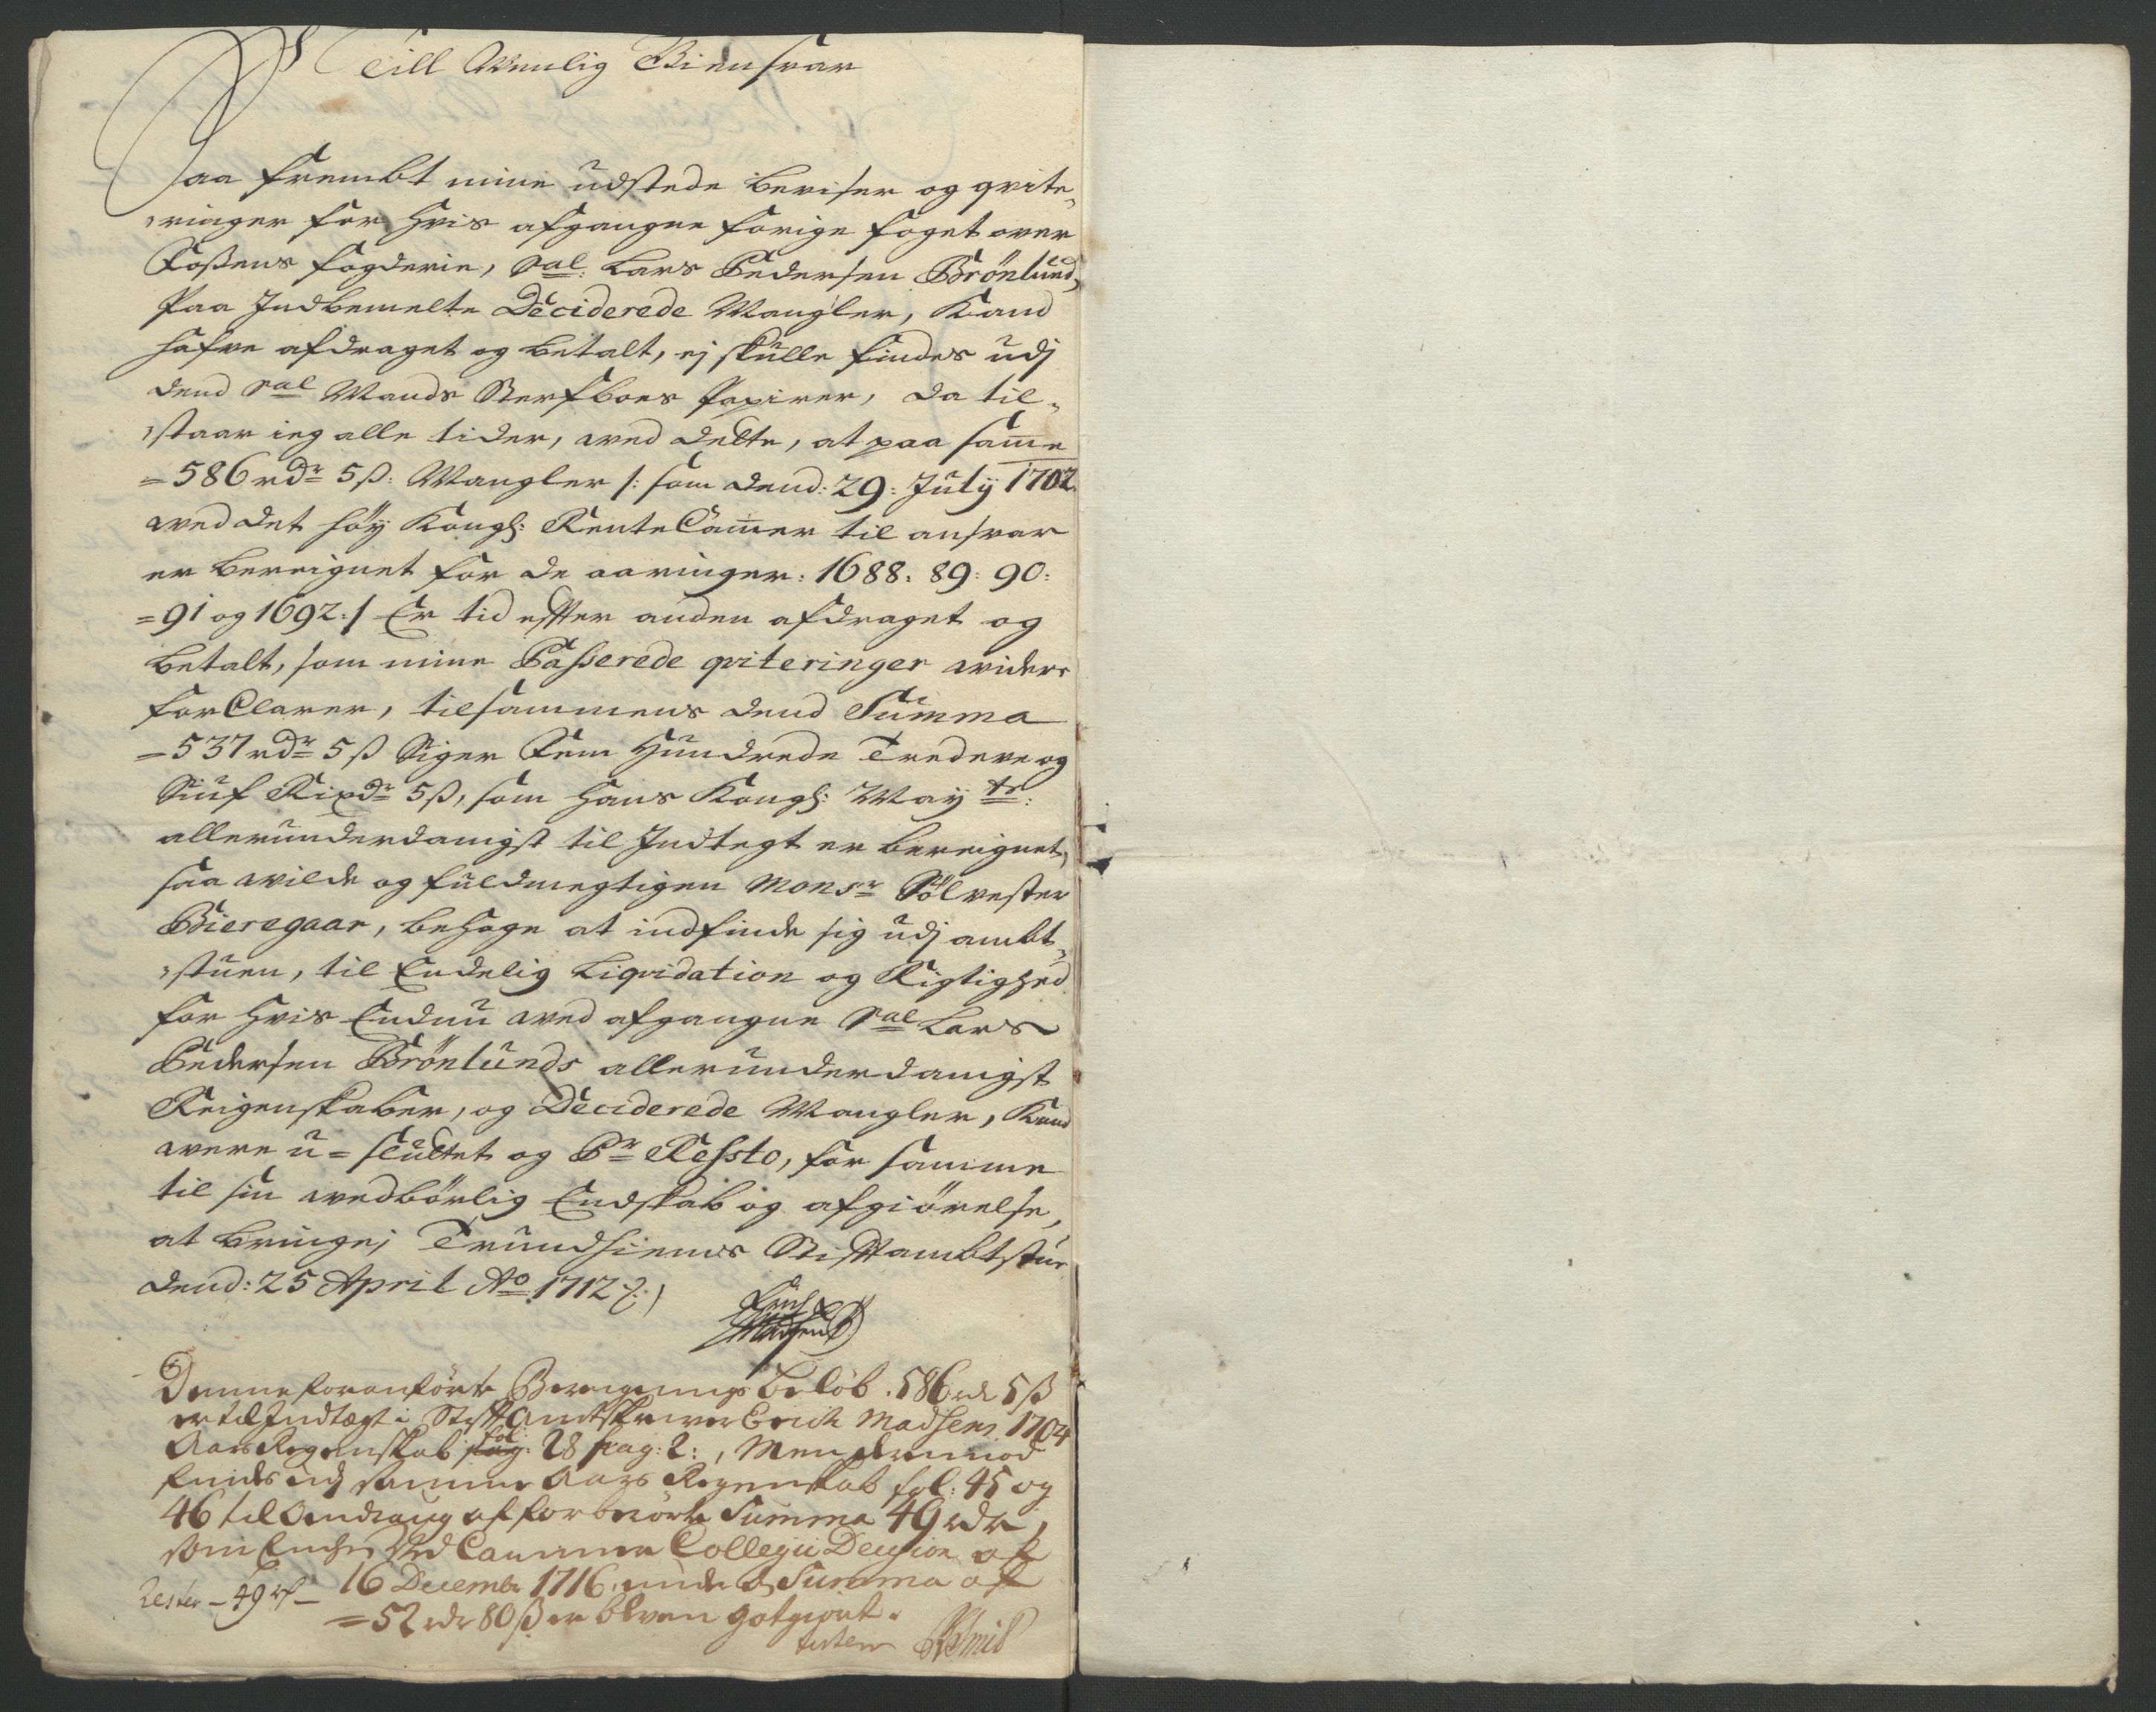 Till Wenlig Giensvar
Saa frembt mine udstede beviser og qvite-
ringer for hvis afgangne forige foget over
Foßens fogderie, Sal: Lars Pedersen Brönlund,
Paa Indbemelte Deciderede Mangler, Kand
hafve afdraget og betalt, ej skulle findes udj
dend Sal Mands Sterfboes Papirer, da til-
staar ieg alle tider, med dette, at paa sam̄e
=586 rdr 5 ß: Mangler /: som dend: 29: Julij 1702
ved det höy Kongl: Rente Cam̄er til ansvar
er bereignet for de aaringer: 1688. 89: 90:
=91 og 1692:/ Er tid efter anden afdraget og
betalt, som mine Passerede qviteringer widere
forClarer, tilsammens dend Summa
=537 rdr 5 ß Siger Fem Hundrede Tredeve og
Siuf Rixdr 5 ß, som Hans Kongl: May tr:
allerunderdanigst til Indtegt er bereignet,
saa wilde og fuldmegtigen Monsr Sölvester
Bieregaar, behage at indfinde sig udj ambt-
stuen, til Endelig Liqvidation og Rigtighed
for hvis Endnu ved afgangne Sal Lars
Pedersen Brönlunds allerunderdanigst
Reigenskaber, og Deciderede Mangler, Kand
were u=sluttet og Pr Ressto, for samme
til sin wedbörlig Endskab og afgiörelse,
at bringe; Trundhiems Stiftambtstue
dend: 25 April Ao 1712
Erich
Madsen
Denne foranförte Beregnings belöb. 586 rdr 5 ß
er til Indtægt i Stift Amtskriver Erich Madsens 1704
Aars Regenskab fol: 28 pag: 2:, Men derimod
findes udj samme Aars Regenskab fol: 45 og
46 til Afdrag af forberörte Summa 49 rdr,
som Ved Cammer Collegii Decision af
Rester - 49 rd - 16 Decembr 1716, under Summa af
=52 rdr 80 ß er bleven gotgiort.
tester